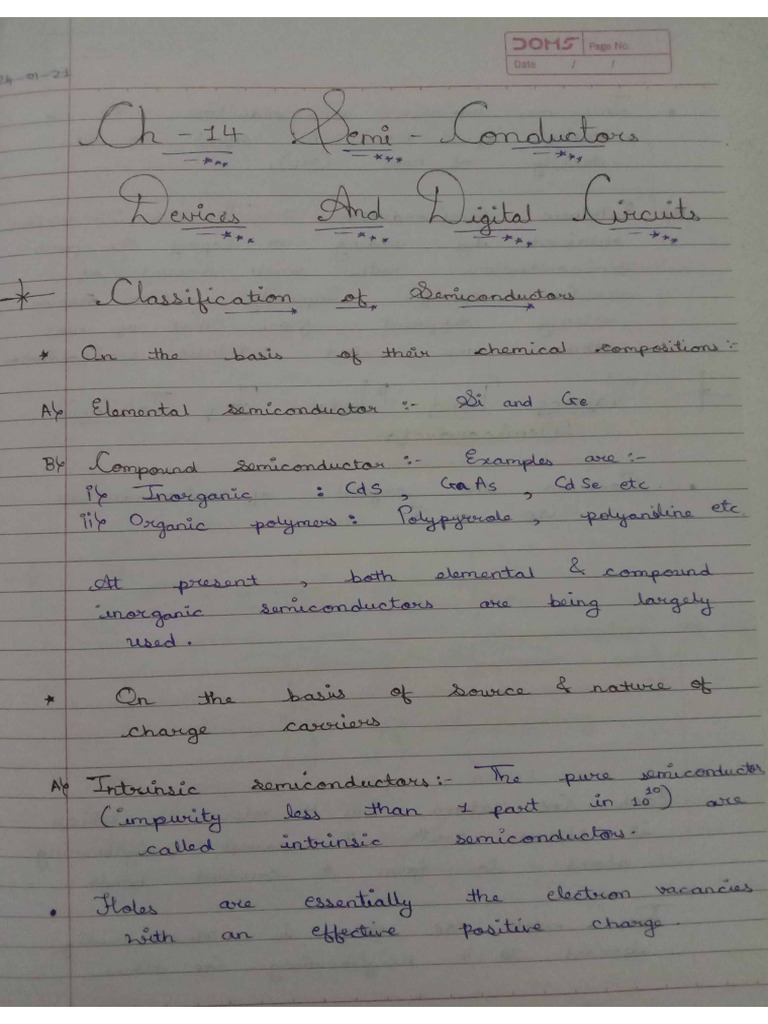 DOMS Page No.
Date / /
24-01-21
Ch - 14 Semi - Conductors
Devices And Digital Circuits
Classification of Semiconductors
* On the basis of their chemical compositions :-
A) Elemental semiconductor :- Si and Ge
B) Compound semiconductor :- Examples are :-
i) Inorganic : CdS , GaAs , CdSe etc
ii) Organic polymers : Polypyrrole , polyaniline etc.
At present , both elemental & compound
inorganic semiconductors are being largely
used .
* On the basis of source & nature of
charge carriers
A) Intrinsic semiconductors :- The pure semiconductor
(impurity less than 1 part in 10¹⁰) are
called intrinsic semiconductors.
• Holes are essentially the electron vacancies
with an effective positive charge.